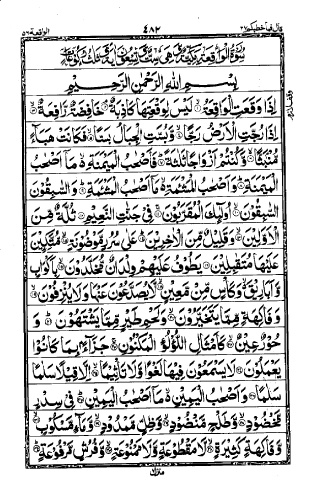 قال فما خطبكم ٢٧ ٤٨٢ الواقعة ٥٦
سُوْرَةُ الْوَاقِعَةِ مَكِّيَّةٌ وَّهِيَ سِتٌّ وَّتِسْعُوْنَ اٰيَةً وَّثَلٰثُ رُكُوْعَاتٍ
بِسْمِ اللّٰهِ الرَّحْمٰنِ الرَّحِيْمِ
اِذَا وَقَعَتِ الْوَاقِعَةُ ۙ لَيْسَ لِوَقْعَتِهَا كَاذِبَةٌ ۘ خَافِضَةٌ رَّافِعَةٌ ۙ
اِذَا رُجَّتِ الْاَرْضُ رَجًّا ۙ وَّبُسَّتِ الْجِبَالُ بَسًّا ۙ فَكَانَتْ هَبَآءً
مُّنْۢبَثًّا ۙ وَّكُنْتُمْ اَزْوَاجًا ثَلٰثَةً ؕ فَاَصْحٰبُ الْمَيْمَنَةِ ۙ مَاۤ اَصْحٰبُ
الْمَيْمَنَةِ ؕ وَاَصْحٰبُ الْمَشْـَٔمَةِ ۙ مَاۤ اَصْحٰبُ الْمَشْـَٔمَةِ ؕ وَالسّٰبِقُوْنَ
السّٰبِقُوْنَ ۙ اُولٰٓئِكَ الْمُقَرَّبُوْنَ ۚ فِيْ جَنّٰتِ النَّعِيْمِ ثُلَّةٌ مِّنَ
الْاَوَّلِيْنَ ۙ وَقَلِيْلٌ مِّنَ الْاٰخِرِيْنَ ؕ عَلٰى سُرُرٍ مَّوْضُوْنَةٍ ۙ مُّتَّكِـِٕيْنَ
عَلَيْهَا مُتَقٰبِلِيْنَ يَطُوْفُ عَلَيْهِمْ وِلْدَانٌ مُّخَلَّدُوْنَ ۙ بِاَكْوَابٍ
وَّاَبَارِيْقَ ۙ وَكَاْسٍ مِّنْ مَّعِيْنٍ ۙ لَّا يُصَدَّعُوْنَ عَنْهَا وَلَا يُنْزِفُوْنَ ۙ
وَفَاكِهَةٍ مِّمَّا يَتَخَيَّرُوْنَ ۙ وَلَحْمِ طَيْرٍ مِّمَّا يَشْتَهُوْنَ ؕ وَ
حُوْرٌ عِيْنٌ ۙ كَاَمْثَالِ اللُّؤْلُؤِ الْمَكْنُوْنِ ۚ جَزَآءًۢ بِمَا كَانُوْا
يَعْمَلُوْنَ لَا يَسْمَعُوْنَ فِيْهَا لَغْوًا وَّلَا تَاْثِيْمًا ۙ اِلَّا قِيْلًا سَلٰمًا
سَلٰمًا وَاَصْحٰبُ الْيَمِيْنِ ۙ مَاۤ اَصْحٰبُ الْيَمِيْنِ ؕ فِيْ سِدْرٍ
مَّخْضُوْدٍ ۙ وَّطَلْحٍ مَّنْضُوْدٍ ۙ وَّظِلٍّ مَّمْدُوْدٍ ۙ وَّمَآءٍ مَّسْكُوْبٍ ۙ
وَّفَاكِهَةٍ كَثِيْرَةٍ ۙ لَّا مَقْطُوْعَةٍ وَّلَا مَمْنُوْعَةٍ ۙ وَّفُرُشٍ مَّرْفُوْعَةٍ ؕ